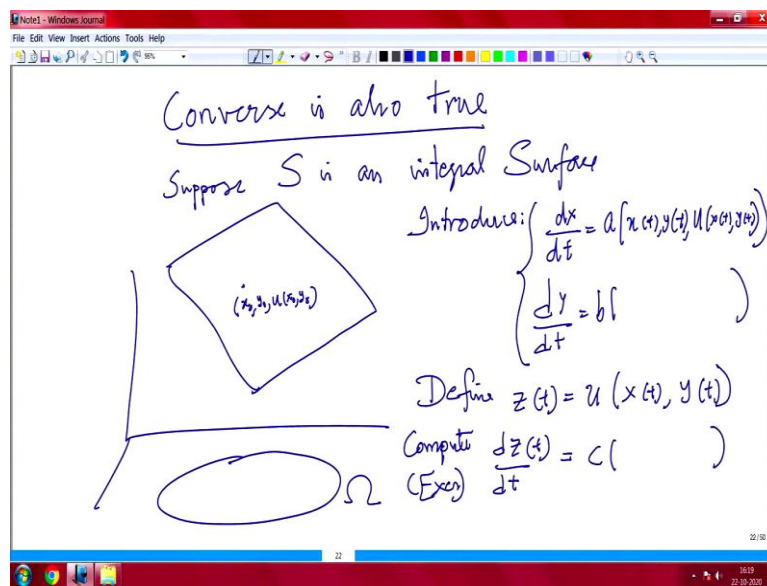 Note1 - Windows Journal
File Edit View Insert Actions Tools Help
96%
B I
Converse is also true
Suppose S is an integral Surface
Introduce: { dx/dt = a(x(t), y(t), u(x(t), y(t)))
(x₀, y₀, u(x₀, y₀))
dy/dt = b( )
Define z(t) = u(x(t), y(t))
Compute dz(t)/dt = c( )
(Exer)
Ω
22/50
22
16:19
22-10-2020